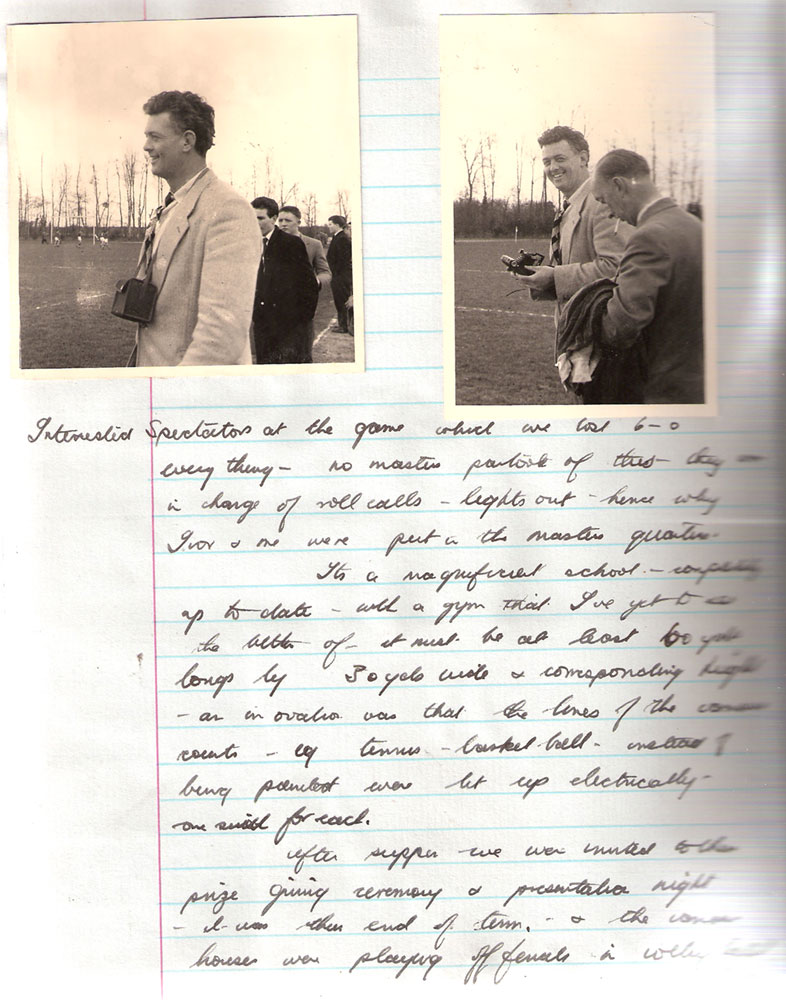 Interested Spectators at the game which we lost 6-0
every thing - no masters partook of this - they
in charge of roll calls - lights out - hence why
Ivor & me were put in the masters quarters.
Its a magnificent school - completely
up to date - with a gym that I've yet to see
the better of - it must be at least 60 yds
longs by 30 yds wide & corresponding height
- an inovation was that the lines of the various
courts - eg tennis - basket ball - instead of
being painted were lit up electrically -
one switch for each.
After supper we were invited to
prize giving ceremony & presentation night
- it was their end of term, - & the various
houses were playing off finals in